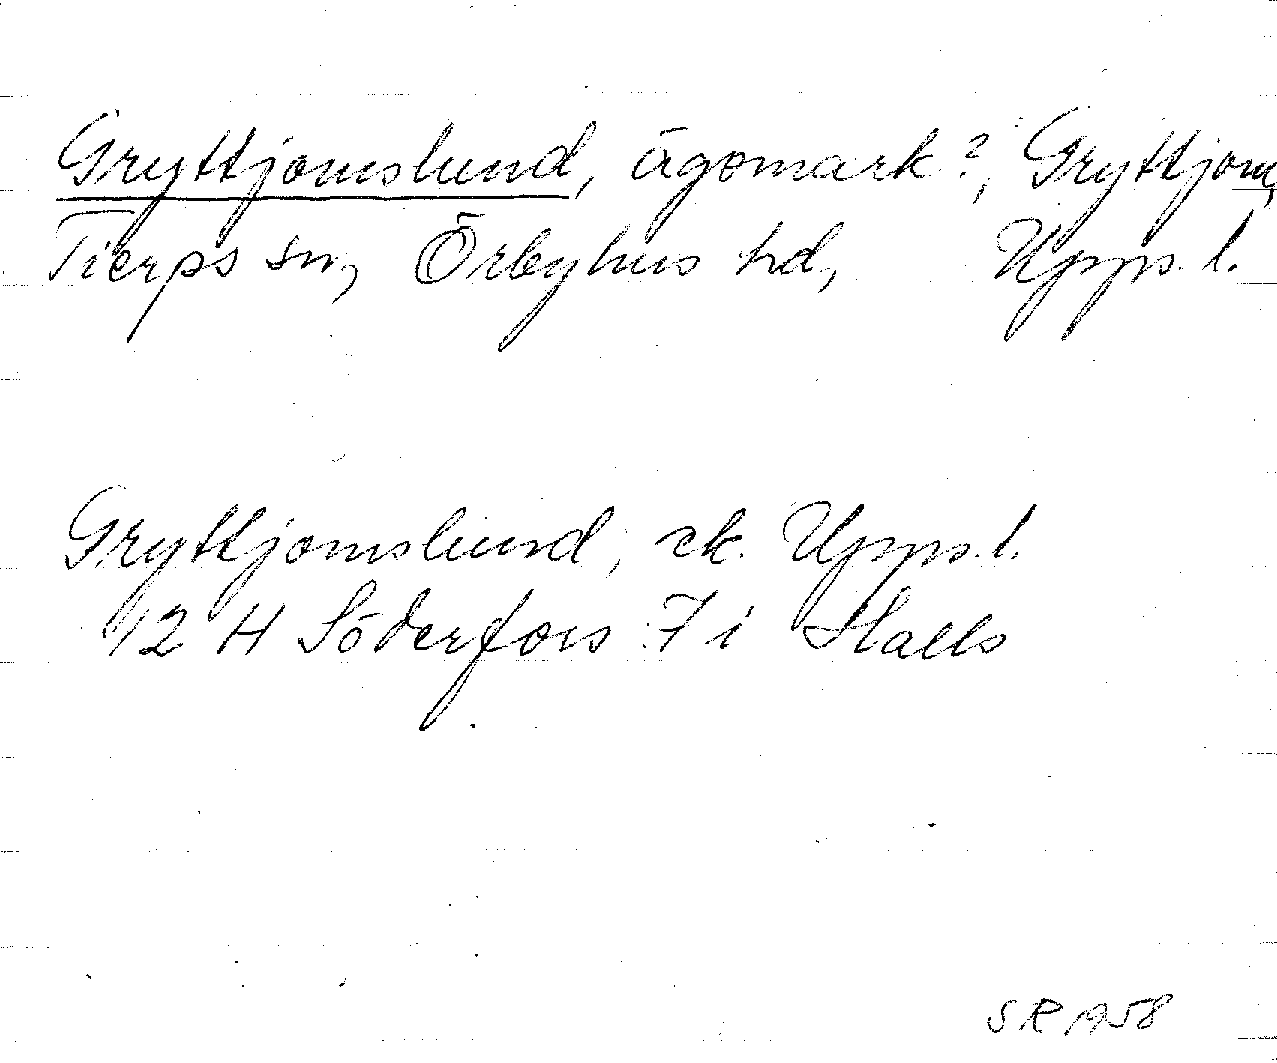 Gryttjomslund, ägomark?, Gryttjom,
Tierps sn, Örbyhus hd, Upps. l.
Gryttjomslund, ek. Upps. l.
12 H Söderfors 7 i Halls
SR 1958